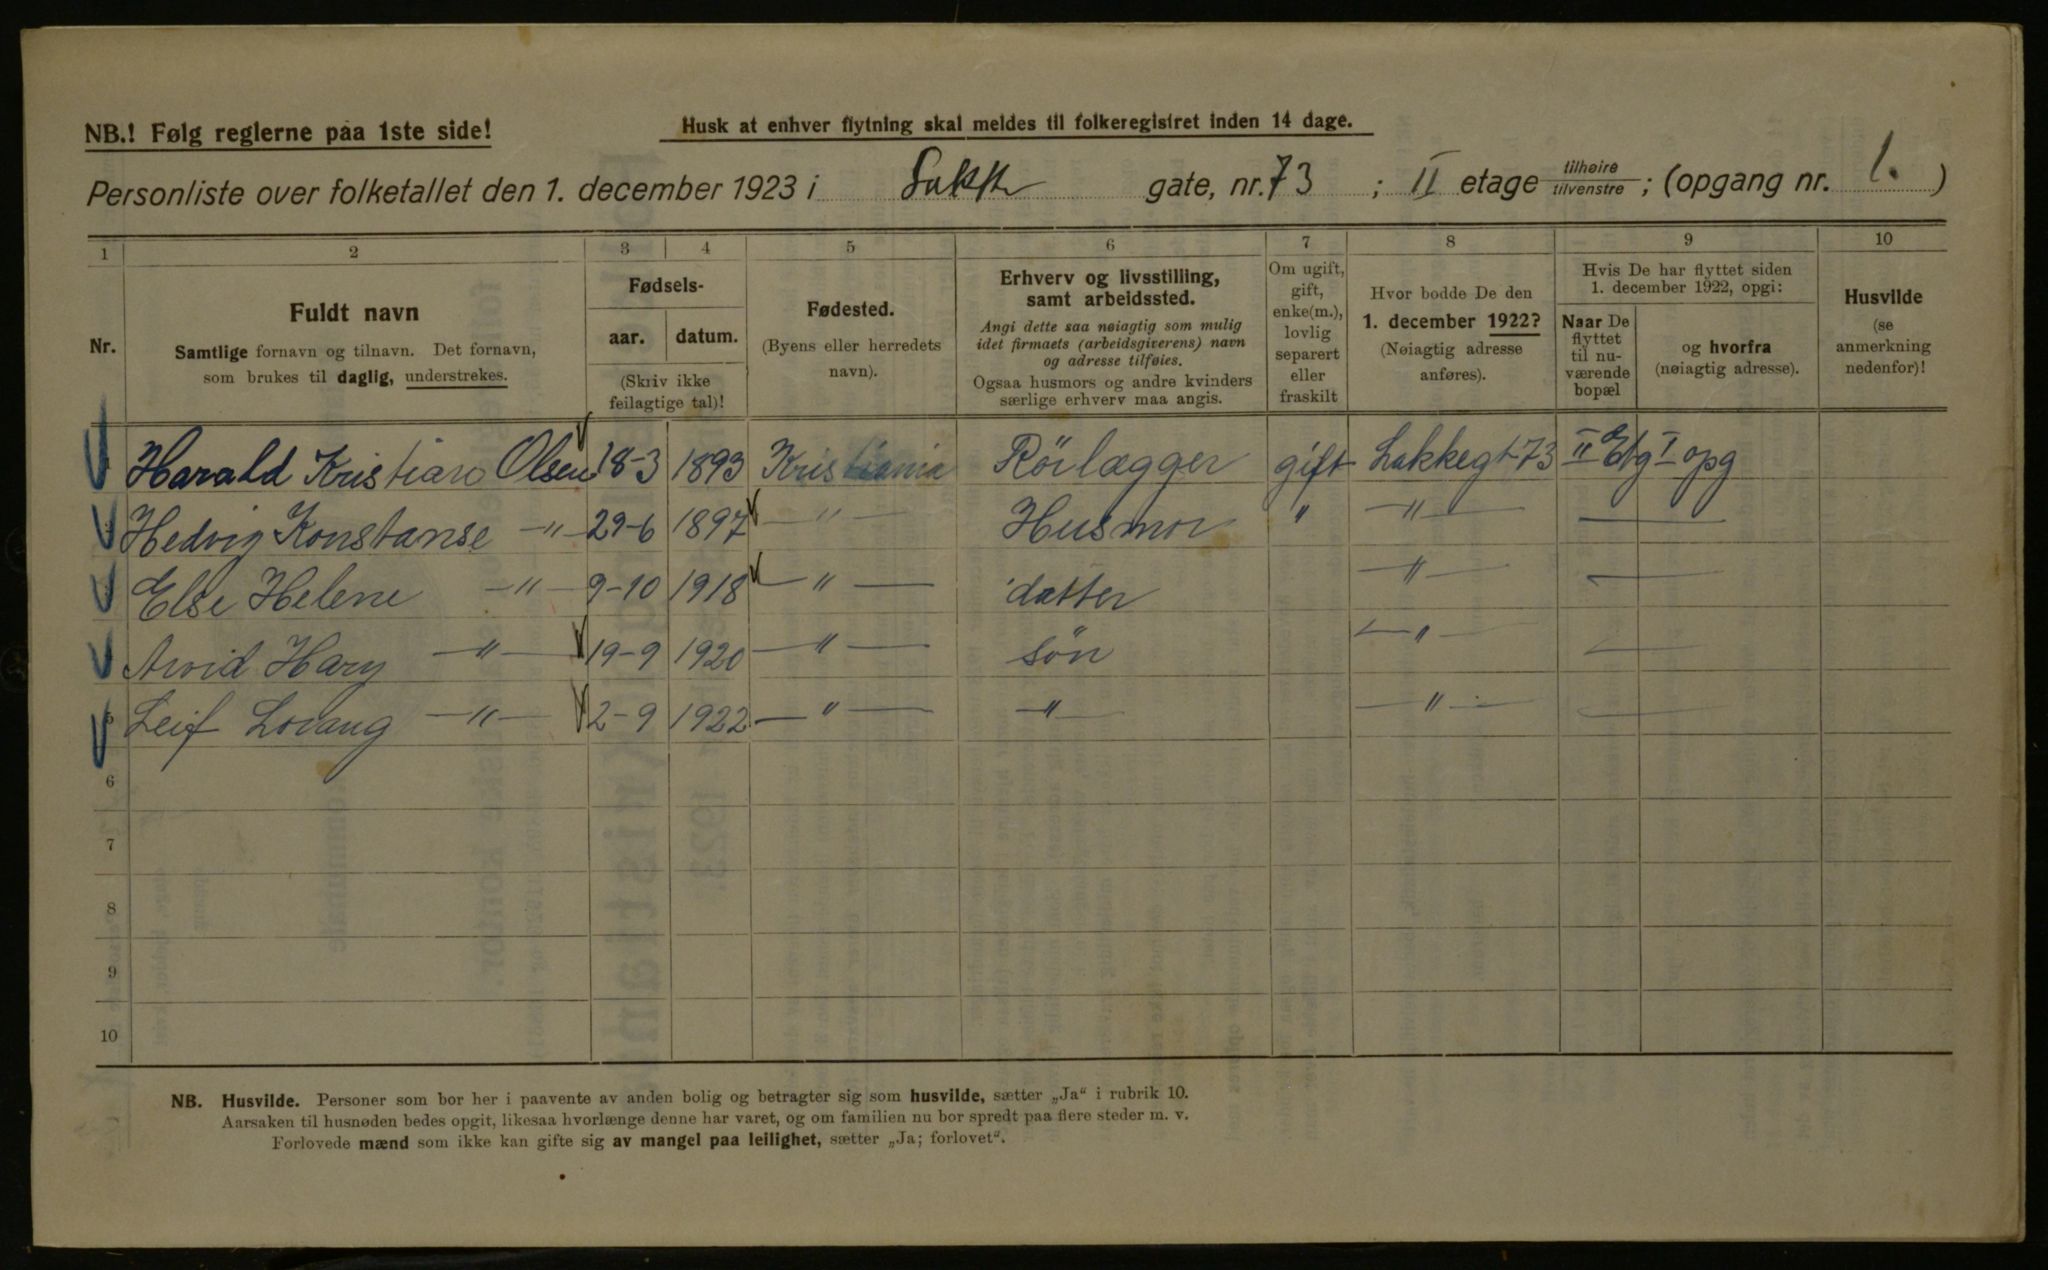 NB.! Følg reglerne paa 1ste side!
Husk at enhver flytning skal meldes til folkeregistret inden 14 dage.
Personliste over folketallet den 1. december 1923 i Lakke gate, nr. 73 ; II etage tilhøire tilvenstre ; (opgang nr. 1. )
1 2 3 4 5 6 7 8 9 10
Nr.
Fuldt navn
Samtlige fornavn og tilnavn. Det fornavn,
som brukes til daglig, understrekes.
Fødsels-
aar. datum.
(Skriv ikke
feilagtige tal)!
Fødested.
(Byens eller herredets
navn).
Erhverv og livsstilling,
samt arbeidssted.
Angi dette saa nøiagtig som mulig
idet firmaets (arbeidsgiverens) navn
og adresse tilføies.
Ogsaa husmors og andre kvinders
særlige erhverv maa angis.
Om ugift,
gift,
enke(m.),
lovlig
separert
eller
fraskilt
Hvor bodde De den
1. december 1922?
(Nøiagtig adresse
anføres).
Hvis De har flyttet siden
1. december 1922, opgi:
Naar De
flyttet
til nu-
værende
bopæl
og hvorfra
(nøiagtig adresse).
Husvilde
(se
anmerkning
nedenfor)!
Harald Kristian Olsen 18-3 1893 Kristiania Rörlægger gift Lakkegt 73 II Etg I opg
Hedvig Konstanse —"— 29-6 1897 —"— Husmor " —"— —
Else Helene —"— 9-10 1918 —"— datter —"— —
Arvid Hary —"— 19-9 1920 —"— sön —"— —
5 Leif Lorang —"— 2-9 1922 —"— —"— —"— —
6
7
8
9
10
NB. Husvilde. Personer som bor her i paavente av anden bolig og betragter sig som husvilde, sætter „Ja“ i rubrik 10.
Aarsaken til husnøden bedes opgit, likesaa hvorlænge denne har varet, og om familien nu bor spredt paa flere steder m. v.
Forlovede mænd som ikke kan gifte sig av mangel paa leilighet, sætter „Ja; forlovet“.